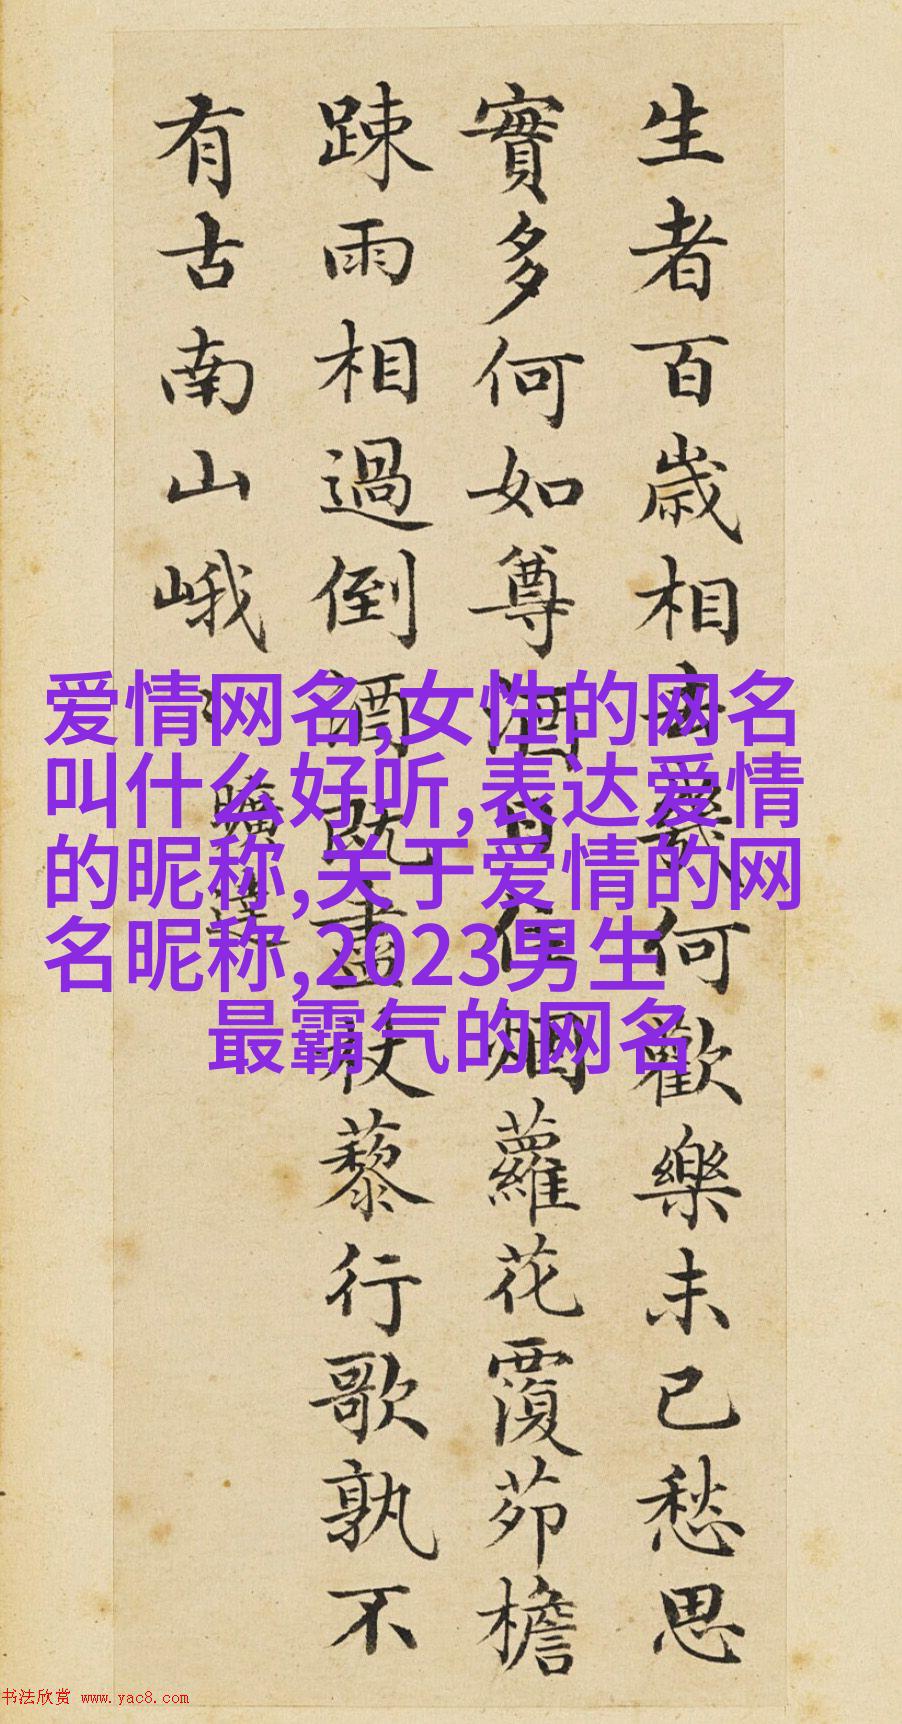 生者百歲相去幾何歡樂未已愁思
實多何如尊酒日往烟蘿花覆茆檐
踈雨相過倒酒既盡杖藜行歌孰不
有古南山峨〻
曠達
爱情网名,女性的网名
叫什么好听,表达爱情
的昵称,关于爱情的网
名昵称,2023男生
最霸气的网名
书法欣赏 www.yac8.com